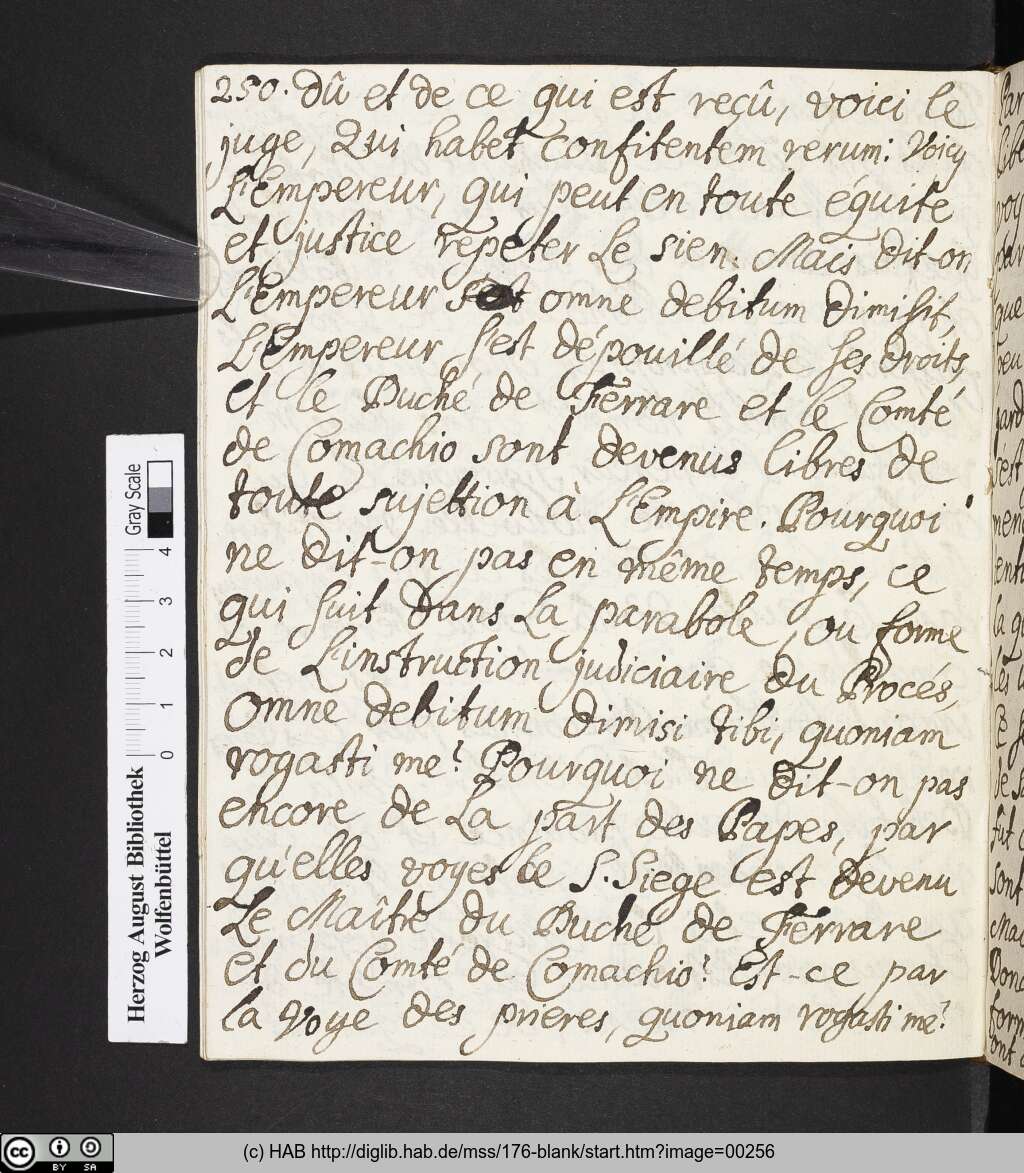 250. dû et de ce qui est reçû, voici le
juge, Qui habet confitentem rerum: Voicy
L'Empereur, qui peut en toute équité
et justice repeter le sien. Mais dit-on
L'Empereur omne debitum dimisit,
L'Empereur s'est dépouillé de ses droits,
et le Duché de Ferrare et le Comté
de Comachio sont devenus libres de
toute sujettion à L'Empire. Pourquoi
ne dit-on pas en même temps, ce
qui suit dans la parabole, ou forme
de L'instruction judiciaire du Procés,
Omne debitum dimisi tibi, quoniam
rogasti me? Pourquoi ne dit-on pas
encore de la part des Papes, par
qu'elles voyes le S. Siege est devenu
Le Maître du Duché de Ferrare
et du Comté de Comachio? Est-ce par
la voye des prieres, quoniam rogasti me?
Gray Scale
0 1 2 3 4
Herzog August Bibliothek
Wolfenbüttel
cc BY SA
(c) HAB http://diglib.hab.de/mss/176-blank/start.htm?image=00256